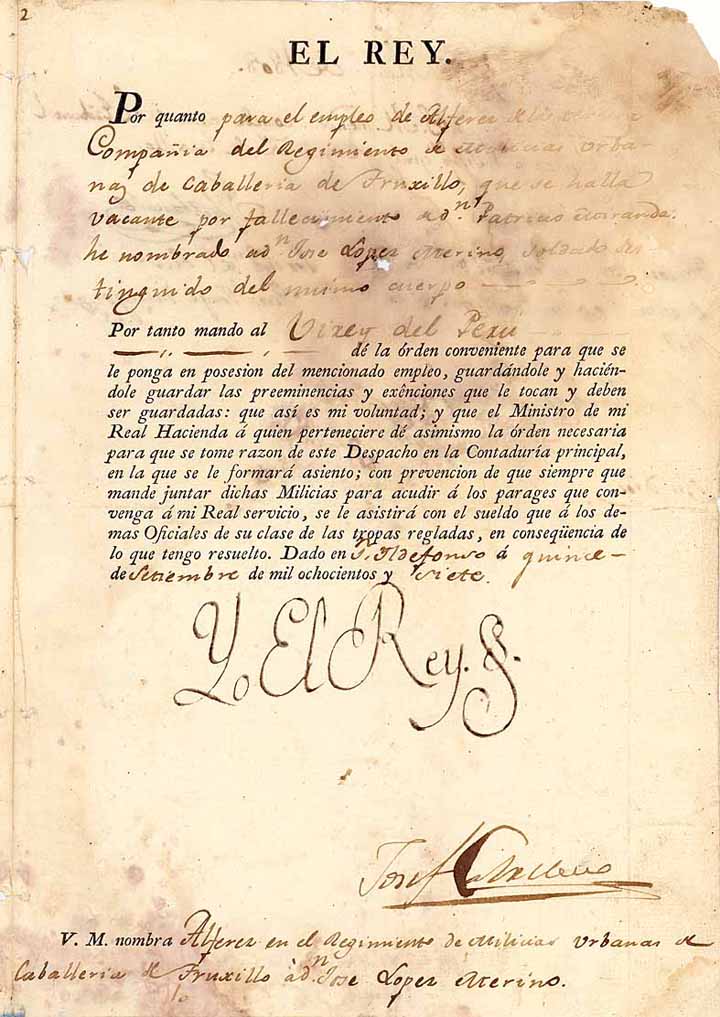 2
EL REY.
Por quanto para el empleo de Alferez de la
Compañia del Regimiento de Milicias Urba-
nas de Caballeria de Truxillo, que se halla
vacante por fallecimiento de dn. Patricio Miranda.
he nombrado a dn. Jose Lopez Merino, Soldado dis-
tinguido del mismo cuerpo
Por tanto mando al Virey del Perú
dé la órden conveniente para que se
le ponga en posesion del mencionado empleo, guardándole y hacién-
dole guardar las preeminencias y exênciones que le tocan y deben
ser guardadas: que así es mi voluntad; y que el Ministro de mi
Real Hacienda á quien perteneciere dé asimismo la órden necesaria
para que se tome razon de este Despacho en la Contaduría principal,
en la que se le formará asiento; con prevencion de que siempre que
mande juntar dichas Milicias para acudir á los parages que con-
venga á mi Real servicio, se le asistirá con el sueldo que á los de-
mas Oficiales de su clase de las tropas regladas, en conseqüencia de
lo que tengo resuelto. Dado en S. Ildefonso á quince
de Setiembre de mil ochocientos y siete.
Yo El Rey.
Josef Caballero
V. M. nombra Alferez en el Regimiento de Milicias Urbanas de
Caballeria de Truxillo à dn. Jose Lopez Merino.